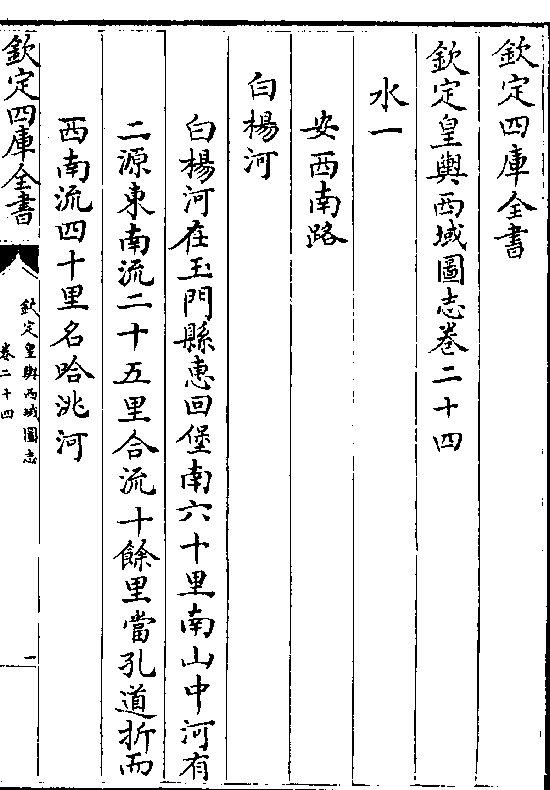 欽定四庫全書
欽定皇輿西域圖志卷二十四
水一
安西南路
白楊河
白楊河在玉門縣惠回堡南六十里南山中河有
二源東南流二十五里合流十餘里當孔道折而
西南流四十里名哈洮河
欽定四庫全書
欽定皇輿西域圖志
卷二十四
一